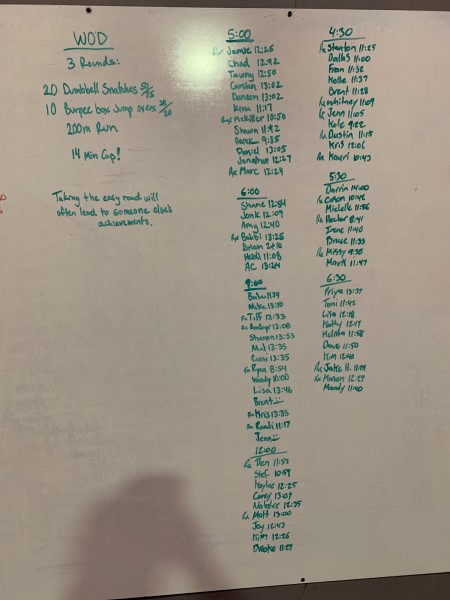 WOD
3 Rounds:
20 Dumbbell Snatches 50/35
10 Burpee box jump overs 24/20
200m Run
14 Min Cap!
Taking the easy road will
often lead to someone else's
achievements.
5:00
Rx Jamie 12:25
Chad 12:42
Tawny 12:50
Carston 13:02
Dansen 13:02
Kim 11:17
Rx McKiller 10:50
Shawn 11:42
Derek 9:35
Daniel 13:05
Jonathan 12:27
Rx Marc 12:24
6:00
Shane 12:54
Jonk 12:09
Amy 12:40
Rx Babbi 13:25
Brian
Heidi 11:08
AC 13:24
9:00
Mike 13:10
Rx Tiff 12:33
Rx 13:08
Sharon 13:53
Mel 13:35
Cassi 13:35
Rx Ryan 8:54
Woody 10:00
Lisa 13:46
Brent
Rx Kris 13:35
Rx Randi 11:17
Jenn
12:00
Rx Ben 11:53
Stef 10:59
Haylee 12:25
Corey 13:07
Natalee 12:35
Rx Matt 13:00
Jay 12:43
Kim 12:26
Brooke 11:27
4:30
Rx Stanton 11:25
Dallas 11:00
Fran 11:52
Kollie 11:37
Brent 11:28
Rx Whitney 11:09
Rx Jenn 11:05
Kole 9:22
Rx Dustin 11:15
Kris 12:06
Rx Kauri 10:43
5:30
Darrin 14:00
Rx Carson 10:42
Michelle 11:56
Rx Hector 8:41
Irene 11:40
Bruce 11:33
Rx Missy 9:38
Mark 11:47
6:30
Priya 13:37
Toni 11:42
Lisa 12:18
Kathy 12:47
Melissa 11:58
Dave 11:50
Kim 12:40
Rx Jake H. 11:09
Rx Mason 12:27
Mandy 11:40